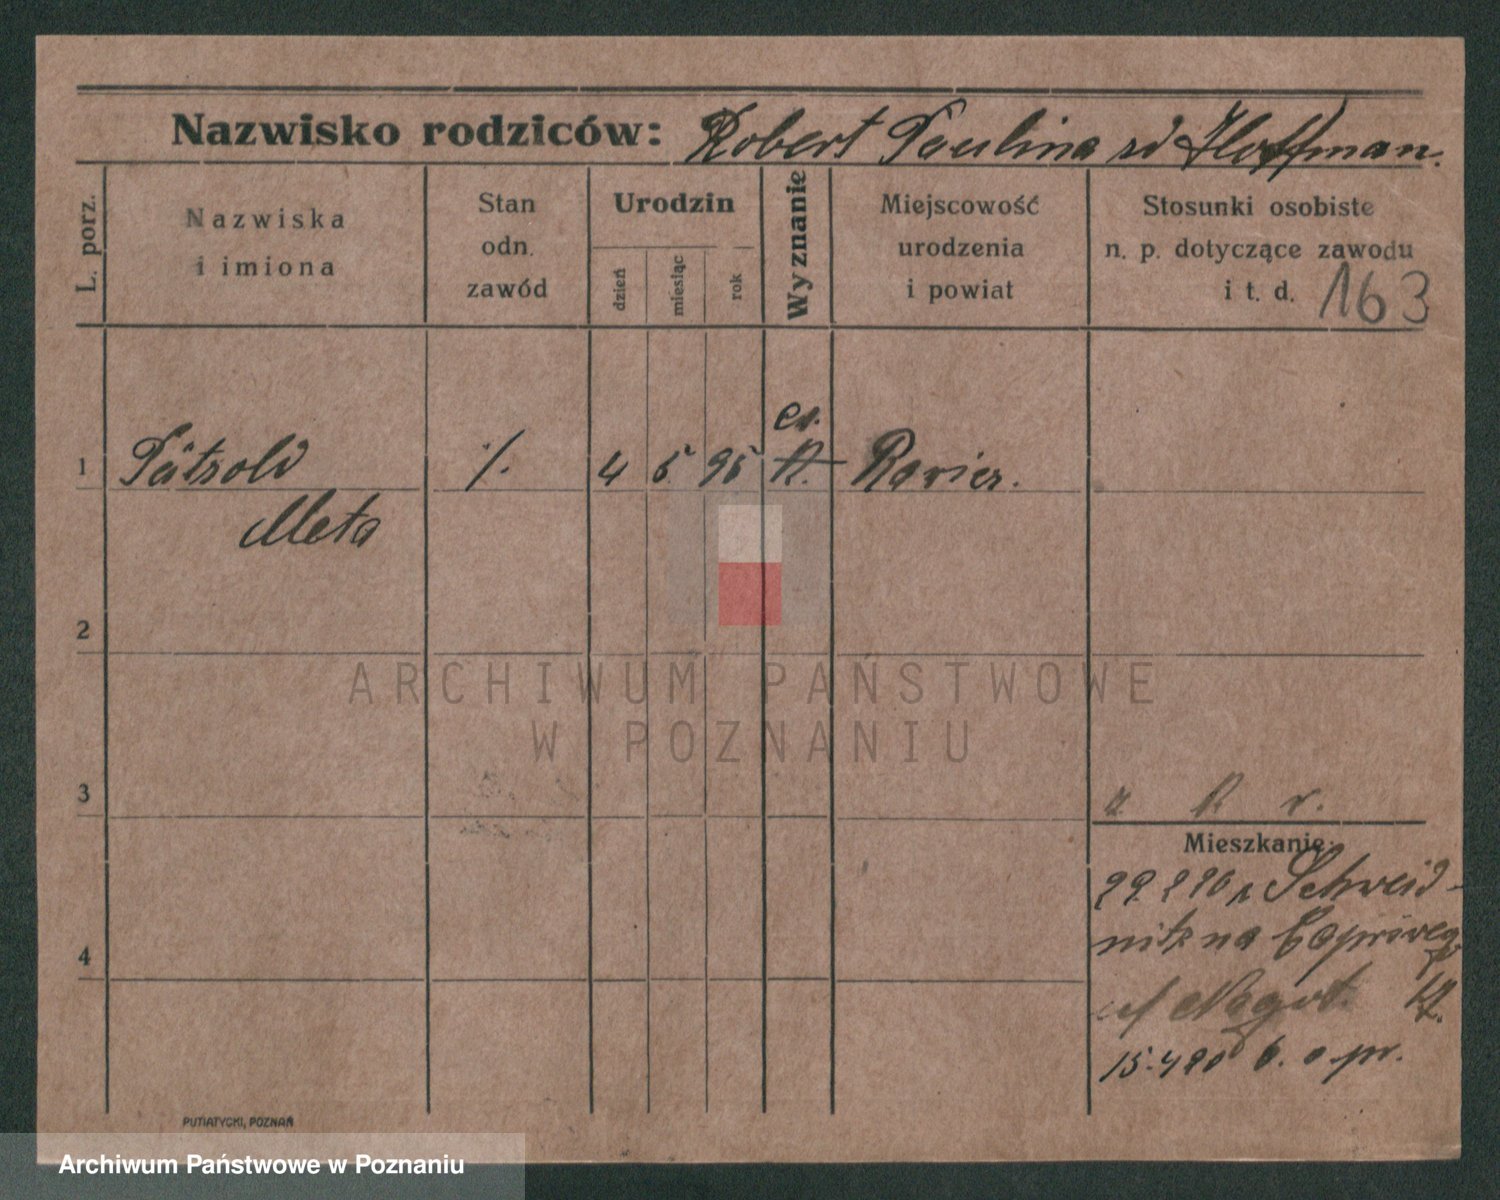 Nazwisko rodziców: Robert Paulina zd Hoffman.
L. porz.
Nazwiska
i imiona
Stan
odn.
zawód
Urodzin
dzień
miesiąc
rok
Wyznanie
Miejscowość
urodzenia
i powiat
Stosunki osobiste
n. p. dotyczące zawodu
i t. d. 163
ew.
1 Pätzold ./. 4 5 95 K.
Meta
2
3
Mieszkanie:
Schweid-
nitz na
4
15.4 20 6. o pr.
PUTIATYCKI, POZNAŃ
ARCHIWUM PAŃSTWOWE
W POZNANIU
Archiwum Państwowe w Poznaniu